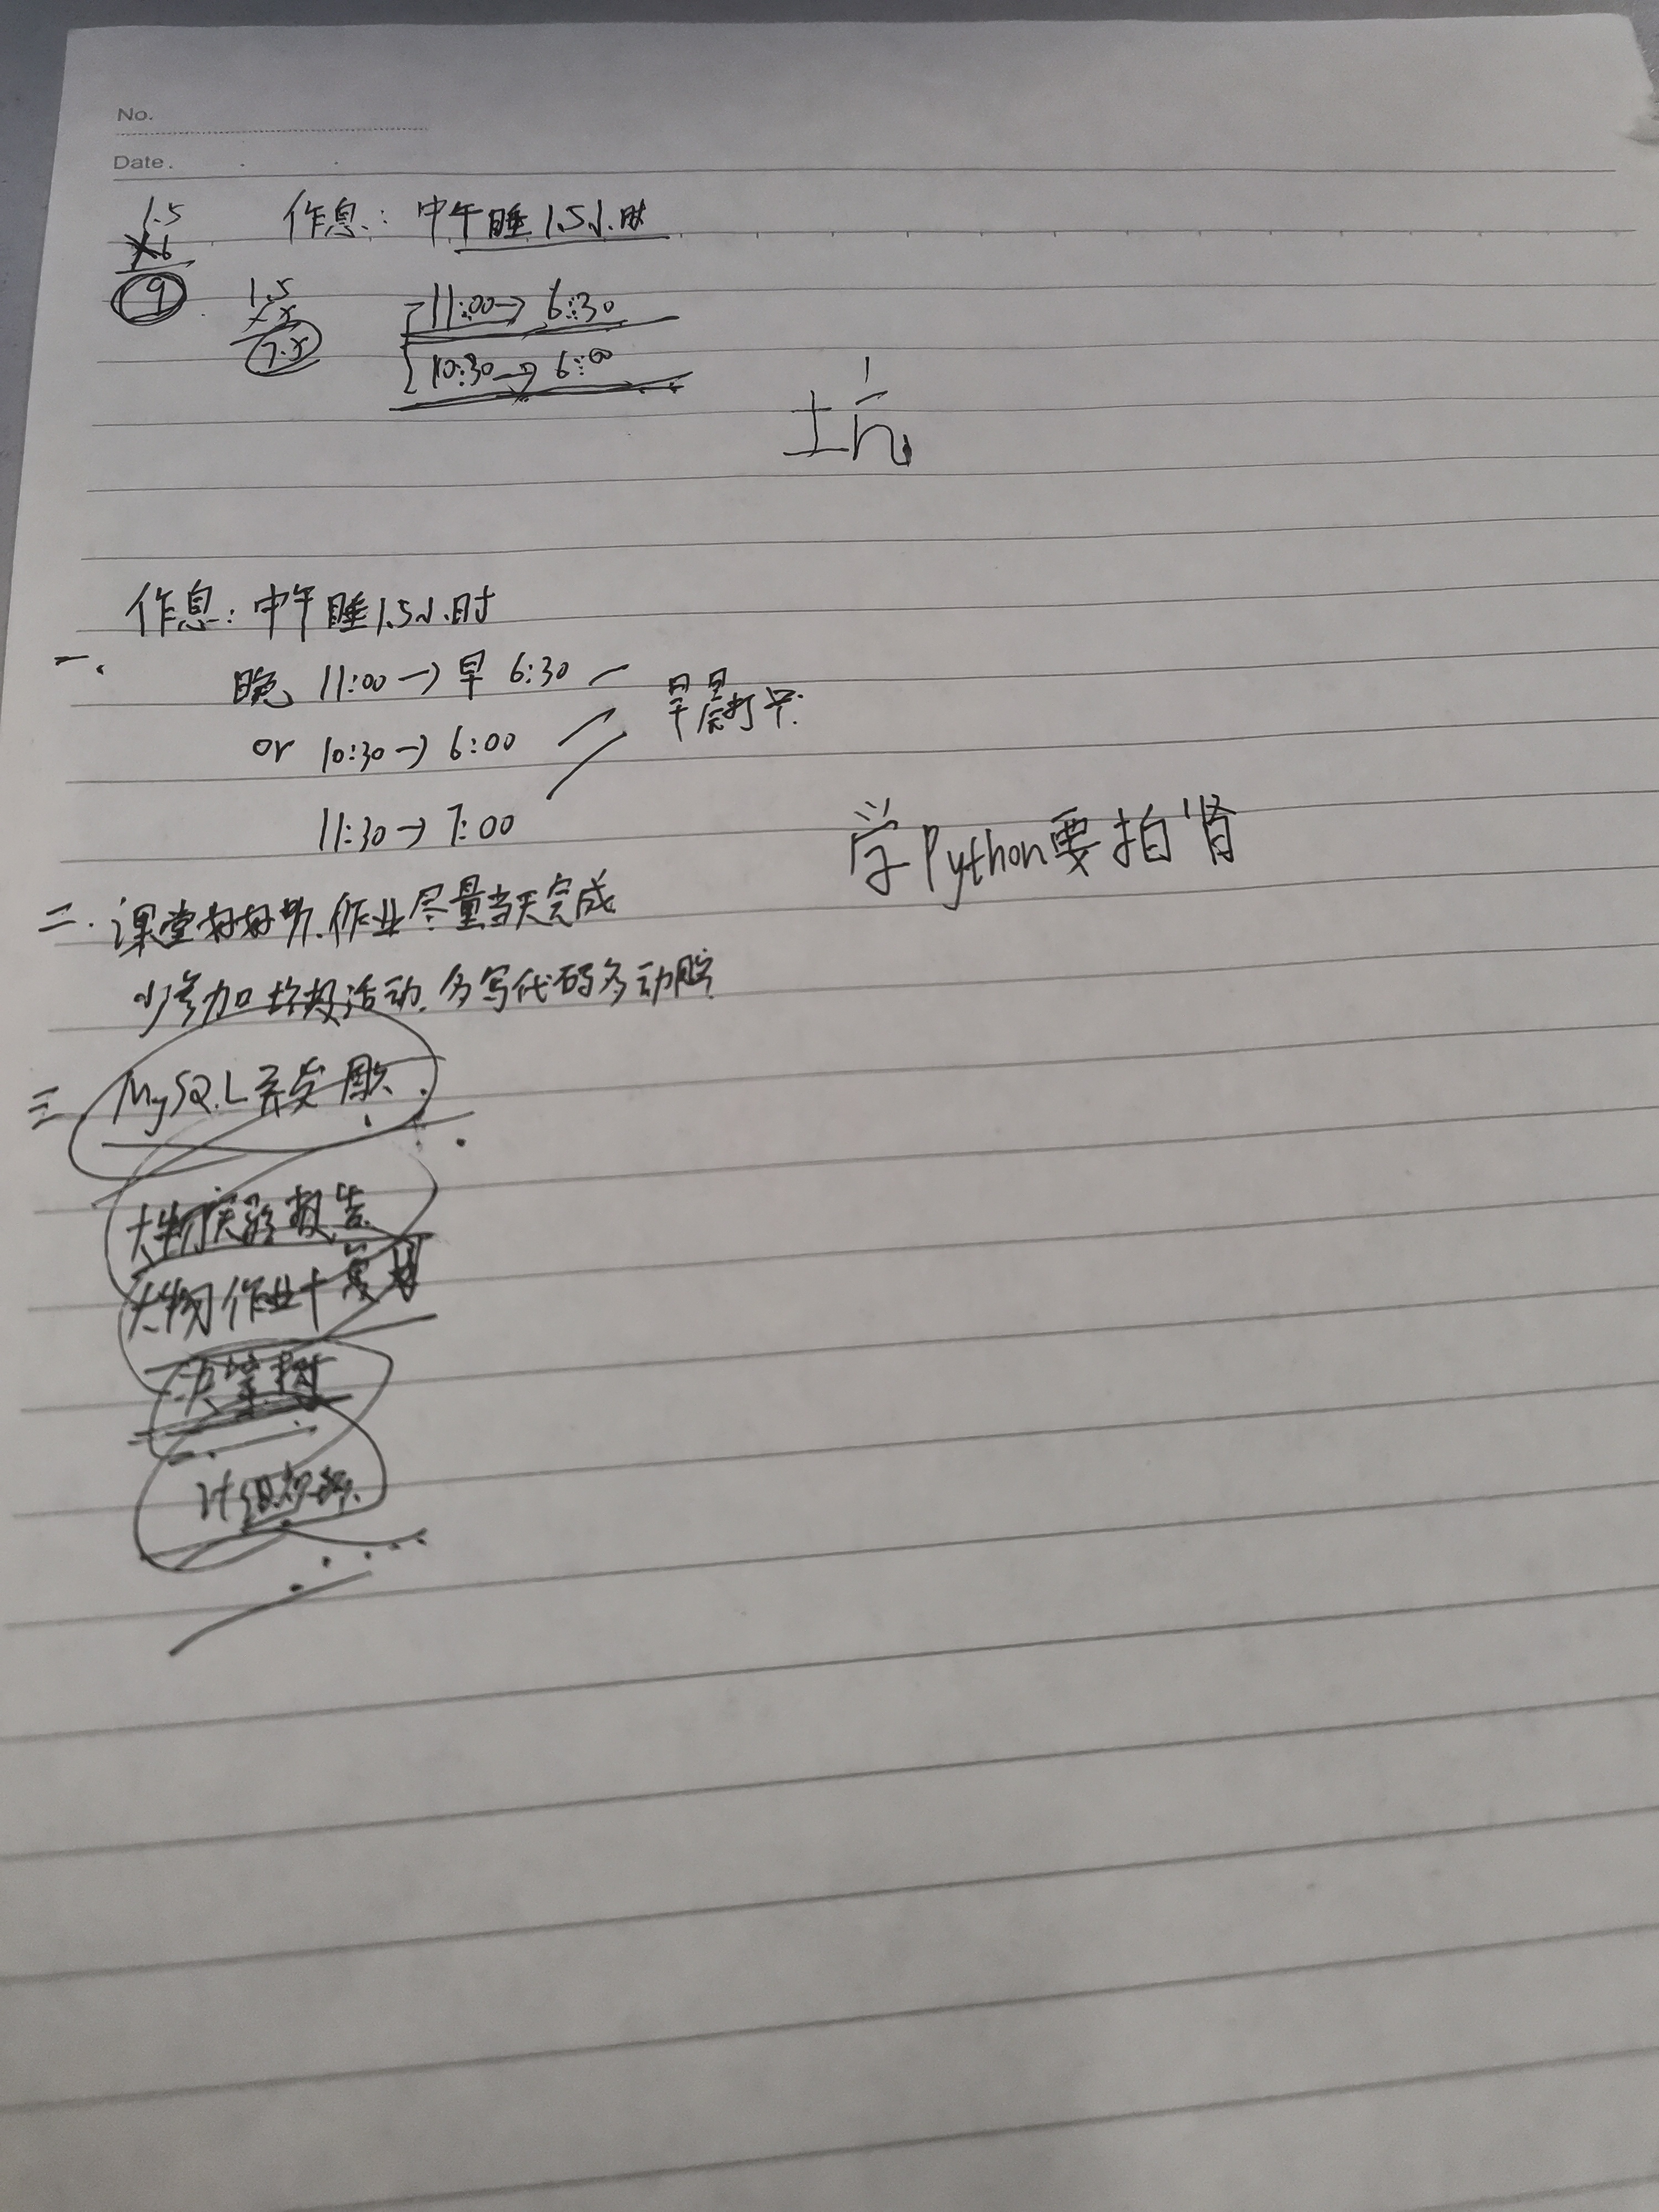 No.
Date.
1.5
×6
9
作息: 中午睡1.5小时
1.5
×5
7.5
11:00→6:30
10:30→6:00
坑
作息: 中午睡1.5小时
一.
晚 11:00→早 6:30
or 10:30→6:00
11:30→7:00
早晨打卡.
学Python要拍肾
二. 课堂好好听.作业尽量当天完成
少参加垃圾活动.多写代码多动脑
三. MySQL开发
大物实验报告
大物作业+复习
决策树
计组